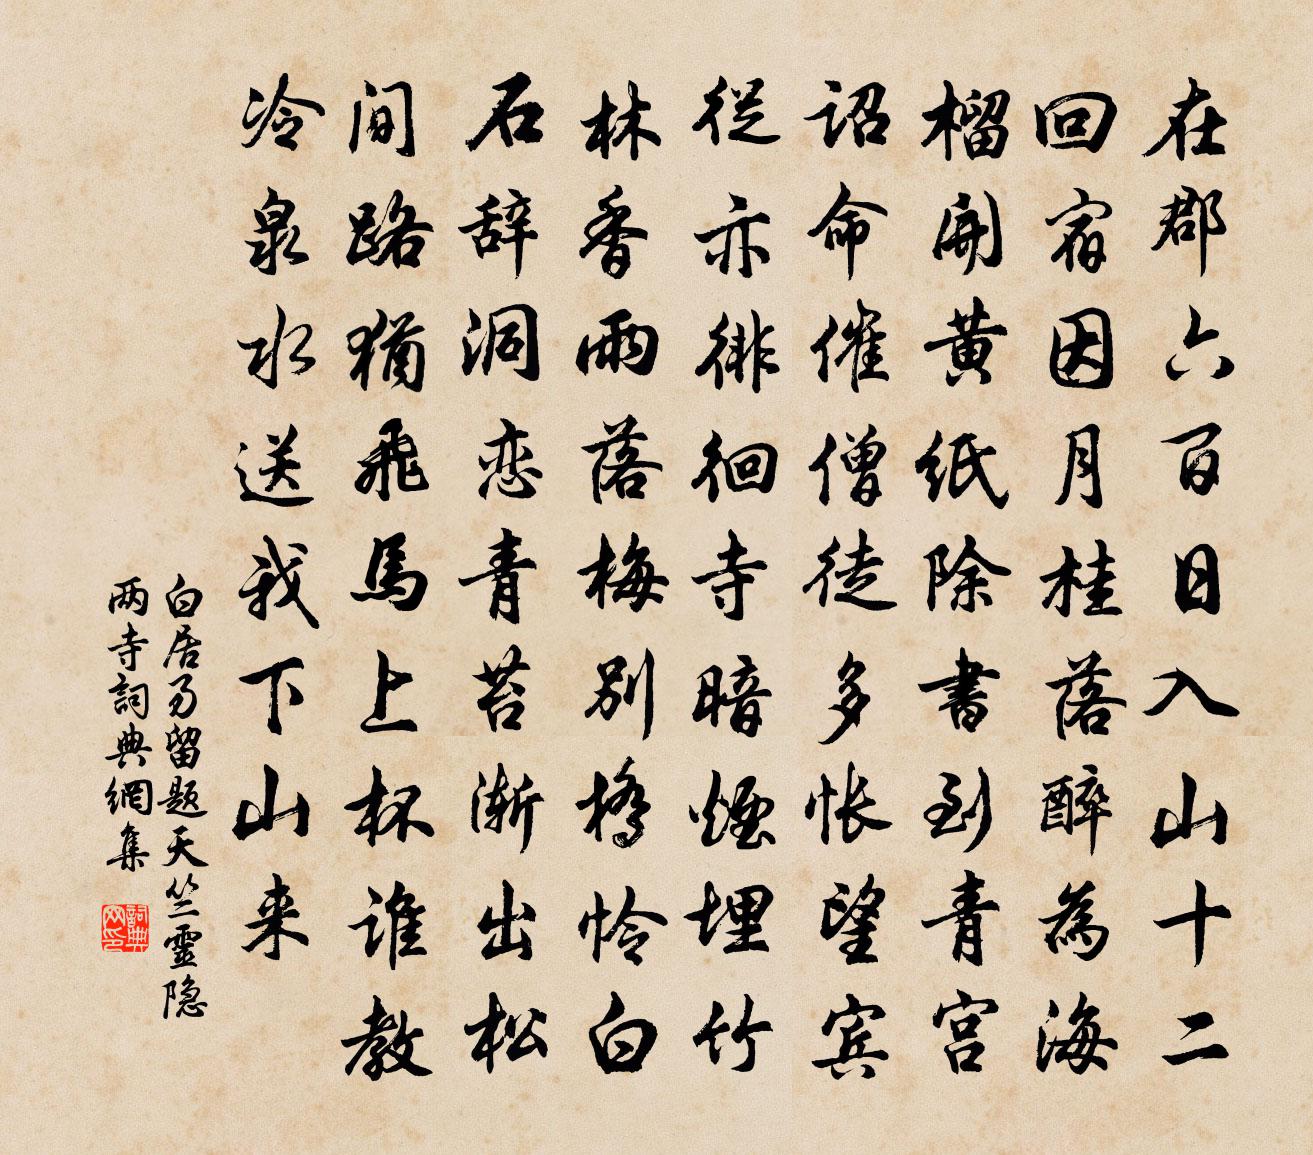 在郡六百日入山十二
回宿因月桂落醉為海
榴開黄紙除書到青宫
詔命催僧徒多悵望宾
從亦徘徊寺暗煙埋竹
林香雨落梅别橋怜白
石辞洞恋青苔漸出松
间路猶飛馬上杯谁教
冷泉水送我下山来
白居易留题天竺靈隐
两寺詞典網集
詞典网印